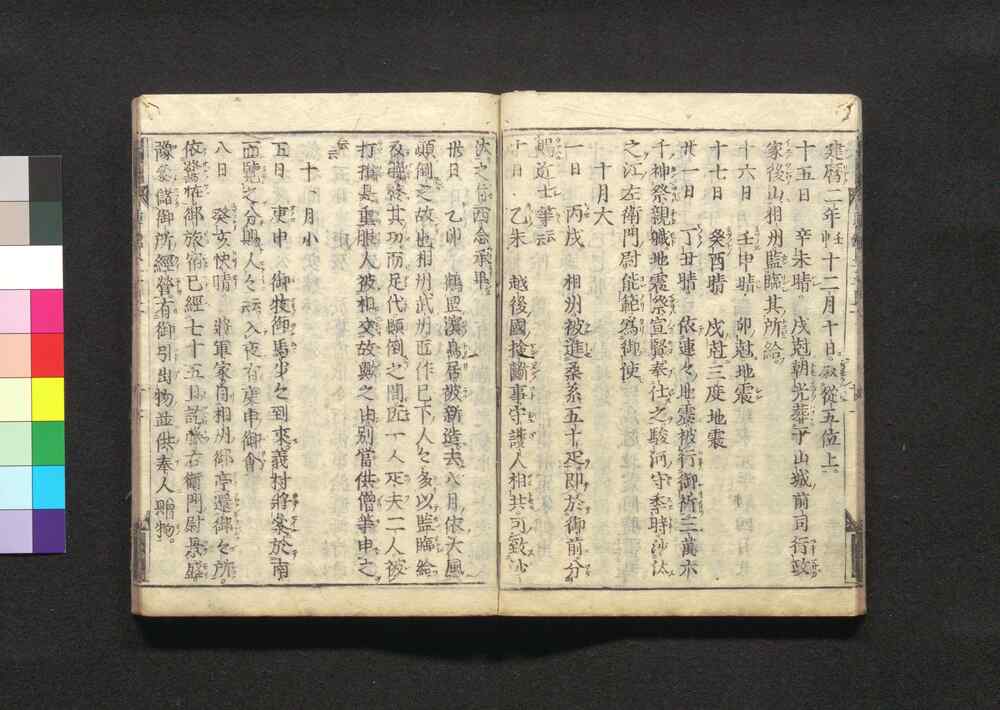 建暦二年壬申十二月十日叙從五位上
十五日　辛未晴　戌尅朝光葬于山城前司行政
家後山相州監臨其所給
十六日　壬申晴　卯尅地震
十七日　癸酉晴　戌尅三度地震
廿一日　丁丑晴　依連々地震被行御祈三萬六
千神祭親職地震祭宣賢奉仕之駿河守季時沙汰
之江左衛門尉能範爲御使
十月大
一日　丙戌　相州被進桑糸五十疋即於御前分
賜近士等云云
十日　乙未　越後國　　事守護人相共可致沙
汰之信西念承畢
卅日　乙卯　鶴岡濱鳥居被新造去八月依大風
顛倒之故也相州武州匠作已下人々多以監臨給
及晩終其功而足代顛倒之間匠一人疋夫二人被
打損是重服人被相交故歟之由別當供僧等申之
云云
十一月小
五日　庚申　御牧御馬少々到來義村將客於南
面覽之分與人々云云入夜有庚申御會
八日　癸亥快晴　將軍家自相州御亭遷御々所
依　　御旅宿已經七十五日訖　右衛門尉景盛
豫　儲御所經營有御引出物並供奉人贈物